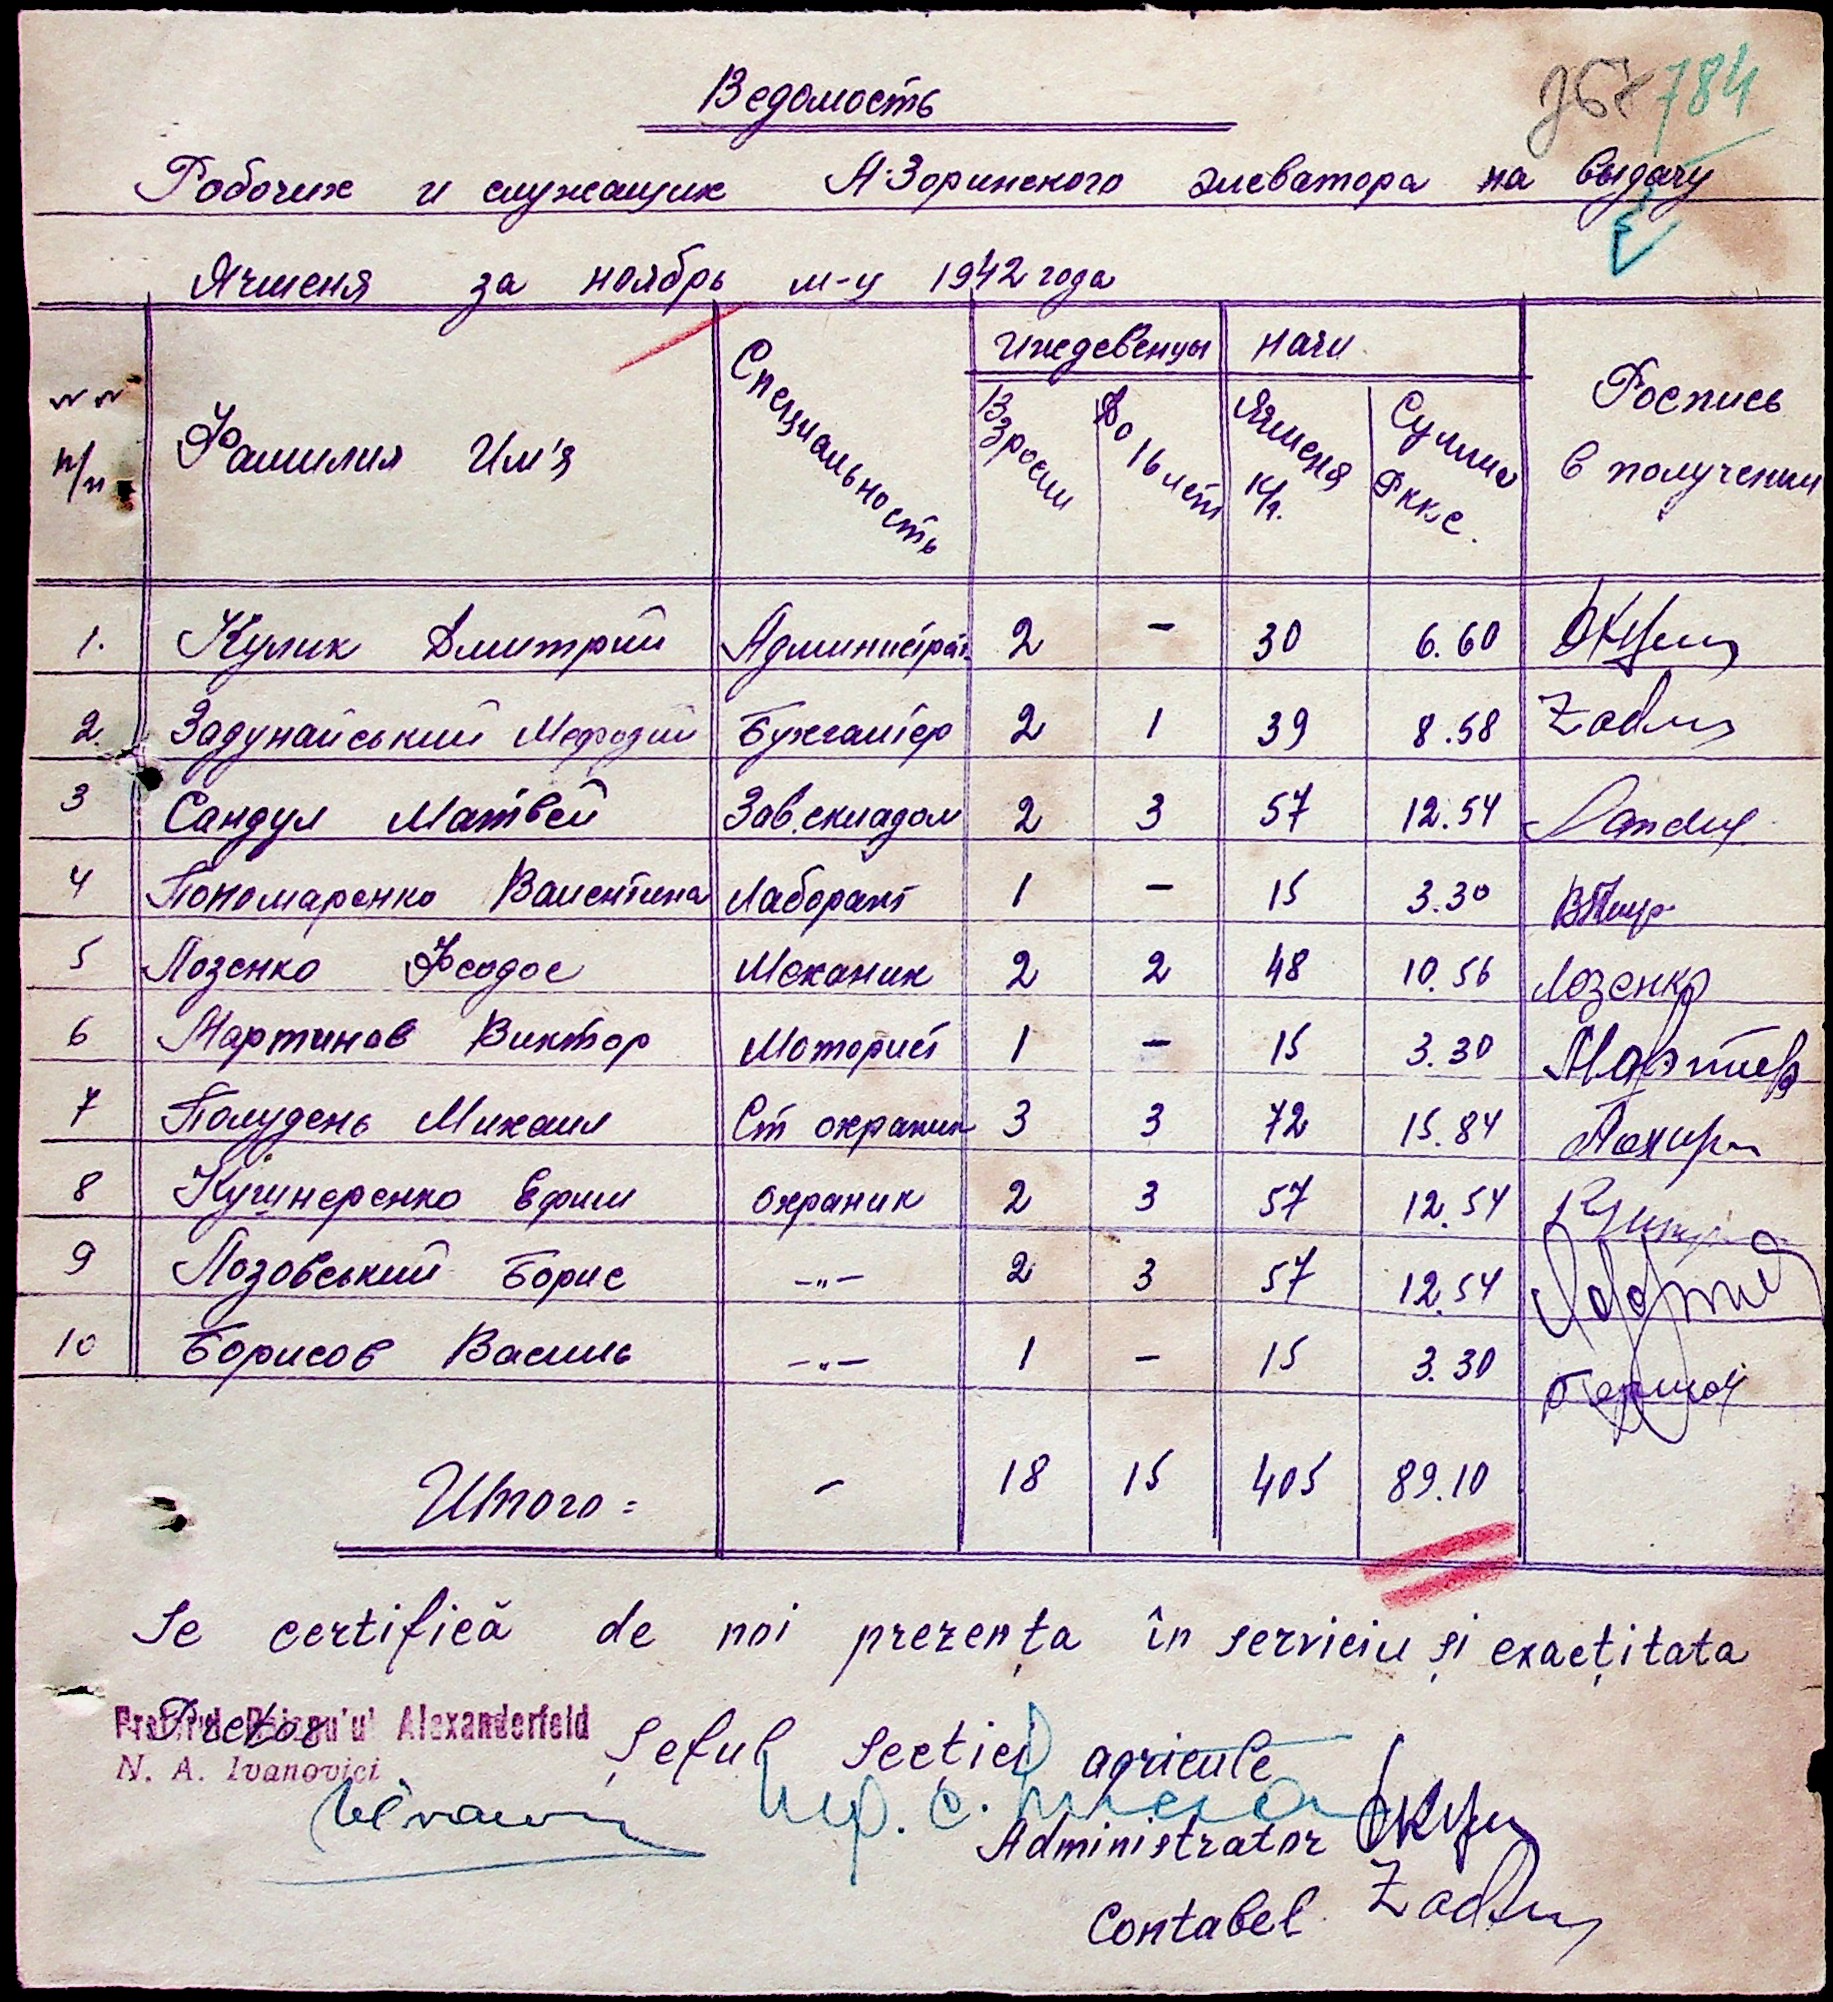 784
Ведомость
Робочих и служащих А-Зоринского элеватора на выдачу
Ячменя за ноябрь м-ц 1942 года
№№ п/п Фамилия Им'я Специальность Иждевенцы Начи Роспись в получении
Взросл До 16 лет Ячменя к/г. Сумма Рккс.
1. Кулик Дмитрий Администрат. 2 – 30 6.60
2. Задунайський Мефодий Бухгалтер 2 1 39 8.58 Zadun
3 Сандул Матвей Зав.складом 2 3 57 12.54 Sandul
4 Пономаренко Валентина Лаборант 1 – 15 3.30
5 Лозенко Феодос Механик 2 2 48 10.56 Лозенко
6 Мартинов Виктор Моторист 1 – 15 3.30
7 Полудень Михаил Ст охраник 3 3 72 15.84
8 Кушнеренко Ефим охраник 2 3 57 12.54
9 Лозовський Борис –„– 2 3 57 12.54
10 Борисов Василь –„– 1 – 15 3.30
Итого = – 18 15 405 89.10
Se certifică de noi prezența în serviciu și exacțitata
Pretor
Alexanderfeld
N. A. Ivanovici
Șeful Secției agricole
Administrator
Contabel Zadun